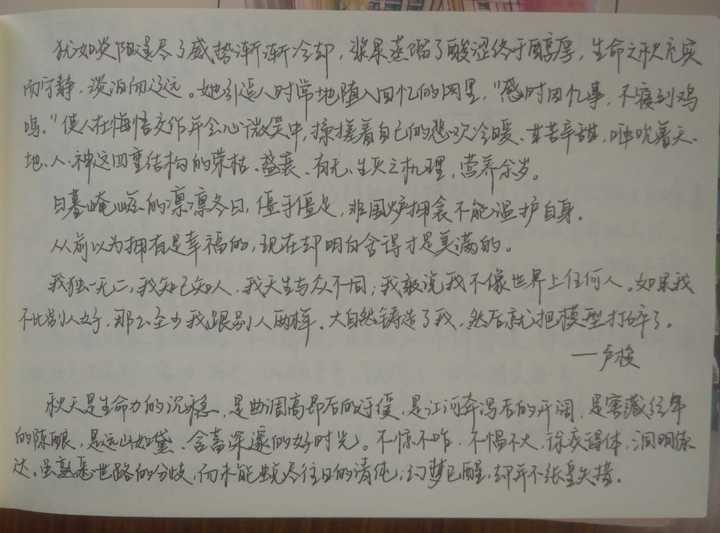 犹如炎阳逞尽了威势渐渐冷却，浆果蒸馏了酸涩终于醇厚，生命之秋充实
而宁静，淡泊而辽远。她引逗人时常地堕入回忆的网里，"感时回忆事，不寝到鸡
鸣。"使人在悔悟交作年会心微笑中，揉搓着自己的悲欢冷暖、甘苦辛甜，唏吹着天、
地、人、神这四重结构的荣枯、盛衰、有无、生灭之机理，营养余岁。
日暮崦嵫的凛凛冬日，僵手僵足，非围炉拥衾不能温护自身。
从前以为拥有是幸福的，现在却明白舍得才是美满的。
我独一无二，我知己知人，我天生与众不同；我敢说我不像世界上任何人。如果我
不比别人好，那么至少我跟别人两样。大自然铸造了我，然后就把模型打碎了。
——卢梭
秋天是生命力的沉稳，是曲调高昂后的纡缓，是江河奔泻后的开阔，是窖藏经年
的陈酿，是远山如黛、含蓄深邃的好时光。不惊不咋，不愠不火，徐疾得体，洞明练
达。虽熟悉世路的分歧，而未能蜕尽往日的清纯，幻梦已醒，却并不张皇失措。